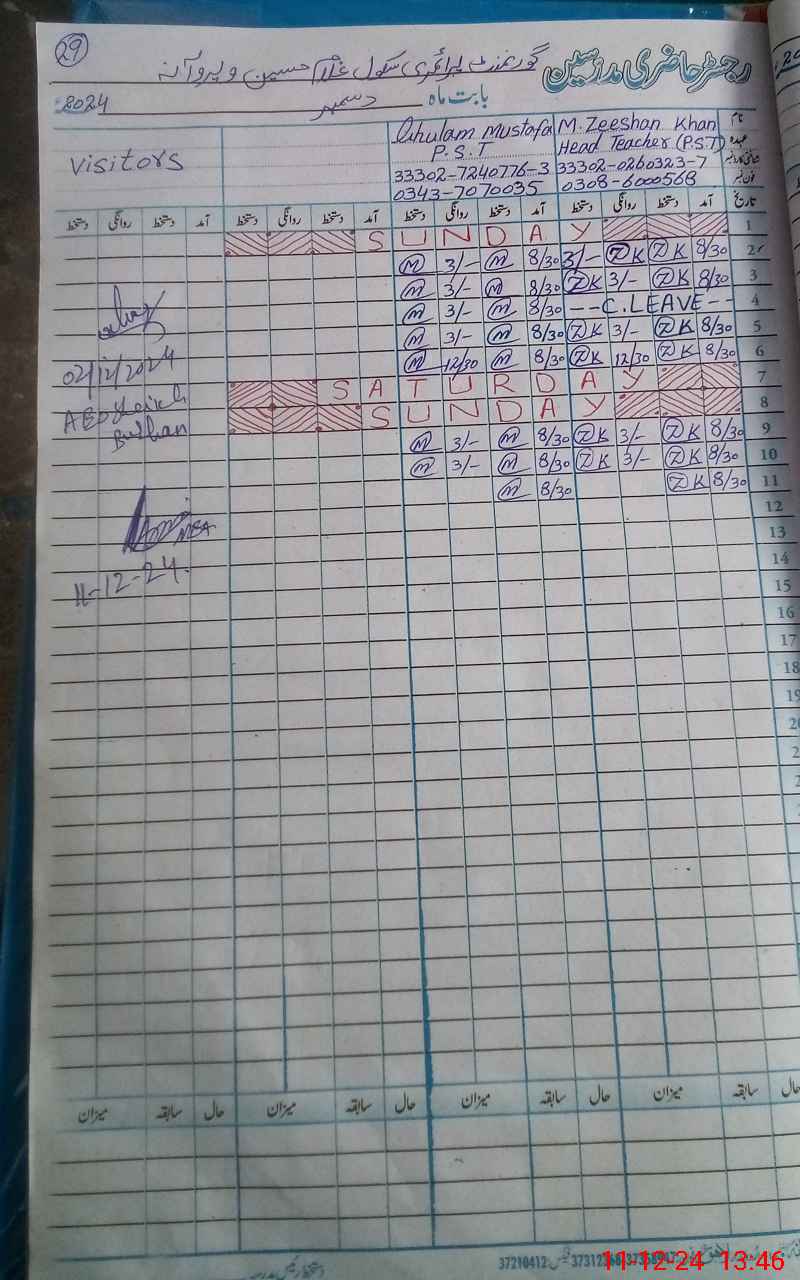 29
رجسٹر حاضری مدرسین گورنمنٹ پرائمری سکول غلام حسین و پروآنہ
بابت ماہ دسمبر 2024
نام M. Zeeshan Khan Ghulam Mustafa Visitors
عہدہ Head Teacher (P.S.T) P.S.T
شناختی کارڈ نمبر 33302-0260323-7 33302-7240776-3
فون نمبر 0308-6000568 0343-7070035
تاریخ آمد دستخط روانگی دستخط آمد دستخط روانگی دستخط آمد دستخط روانگی دستخط آمد دستخط روانگی دستخط
SUNDAY 1
M 3/- M 8/30 3/- ZK ZK 8/30 2
M 3/- M 8/30 ZK 3/- ZK 8/30 3
M 3/- M 8/30 --C.LEAVE-- 4
M 3/- M 8/30 ZK 3/- ZK 8/30 5
M 12/30 M 8/30 ZK 12/30 ZK 8/30 6
SATURDAY 7
SUNDAY 8
M 3/- M 8/30 ZK 3/- ZK 8/30 9
M 3/- M 8/30 ZK 3/- ZK 8/30 10
M 8/30 ZK 8/30 11
12
13
14
15
16
17
18
02/12/2024
AEO
MEA
11-12-24.
حال سابقہ میزان حال سابقہ میزان حال سابقہ میزان حال سابقہ میزان
37210412
11-12-24 13:46